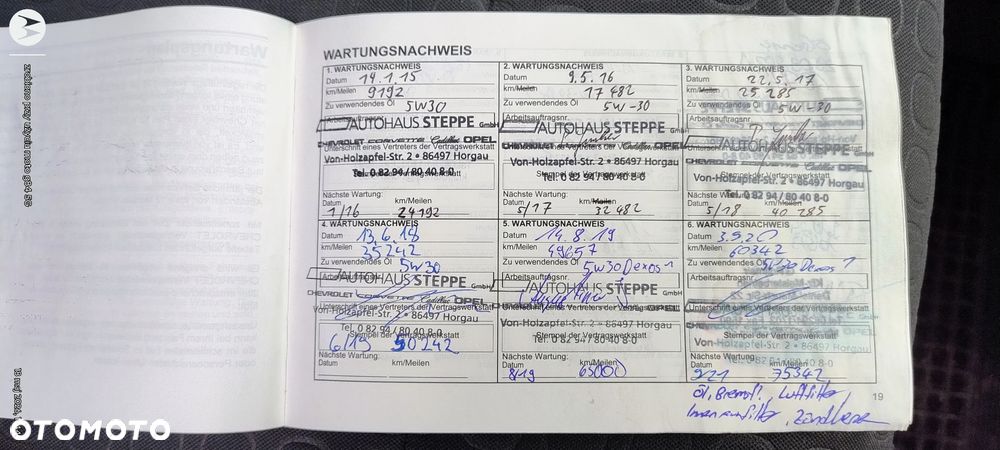 WARTUNGSNACHWEIS
1. WARTUNGSNACHWEIS
Datum 14.1.15
km/Meilen 9192
Zu verwendendes Öl 5W30
AUTOHAUS STEPPE GmbH
CHEVROLET CORVETTE Cadillac OPEL
Unterschrift eines Vertreters der Vertragswerkstatt
Von-Holzapfel-Str. 2 • 86497 Horgau
Tel. 0 82 94 / 80 40 8-0
Nächste Wartung:
Datum km/Meilen
1/16 24192
2. WARTUNGSNACHWEIS
Datum 9.5.16
km/Meilen 17482
Zu verwendendes Öl 5W-30
Arbeitsauftragsnr.
AUTOHAUS STEPPE GmbH
CHEVROLET CORVETTE Cadillac OPEL
Unterschrift eines Vertreters der Vertragswerkstatt
Von-Holzapfel-Str. 2 • 86497 Horgau
Stempel der Vertragswerkstatt
Tel. 0 82 94 / 80 40 8-0
Nächste Wartung:
Datum km/Meilen
5/17 32482
3. WARTUNGSNACHWEIS
Datum 22.5.17
km/Meilen 25285
Zu verwendendes Öl 5W-30
Arbeitsauftragsnr.
AUTOHAUS STEPPE GmbH
CHEVROLET CORVETTE Cadillac OPEL
Von-Holzapfel-Str. 2 • 86497 Horgau
Tel. 0 82 94 / 80 40 8-0
Nächste Wartung:
Datum km/Meilen
5/18 40285
4. WARTUNGSNACHWEIS
Datum 13.6.18
km/Meilen 35242
Zu verwendendes Öl 5W30
Arbeitsauftragsnr.
AUTOHAUS STEPPE GmbH
CHEVROLET CORVETTE Cadillac OPEL
Unterschrift eines Vertreters der Vertragswerkstatt
Von-Holzapfel-Str. 2 • 86497 Horgau
Tel. 0 82 94 / 80 40 8-0
Stempel der Vertragswerkstatt
6/19 50242
Nächste Wartung:
Datum km/Meilen
5. WARTUNGSNACHWEIS
Datum 14.8.19
km/Meilen 49657
Zu verwendendes Öl 5W30 Dexos 1
Arbeitsauftragsnr.
AUTOHAUS STEPPE GmbH
CHEVROLET CORVETTE Cadillac OPEL
Unterschrift eines Vertreters der Vertragswerkstatt
Von-Holzapfel-Str. 2 • 86497 Horgau
Stempel der Vertragswerkstatt
Tel. 0 82 94 / 80 40 8-0
Nächste Wartung:
Datum km/Meilen
8/19 65000
6. WARTUNGSNACHWEIS
Datum 3.9.20
km/Meilen 60342
Zu verwendendes Öl 5W30 Dexos 1
Arbeitsauftragsnr.
Unterschrift eines Vertreters der Vertragswerkstatt
Stempel der Vertragswerkstatt
Von-Holzapfel-Str. 2 • 86497 Horgau
Tel. 0 82 94 / 80 40 8-0
Nächste Wartung:
Datum km/Meilen
9/21 75342
Öl, Bremsfl., Luftfilter
Innenraumfilter,
19
OTOMOTO